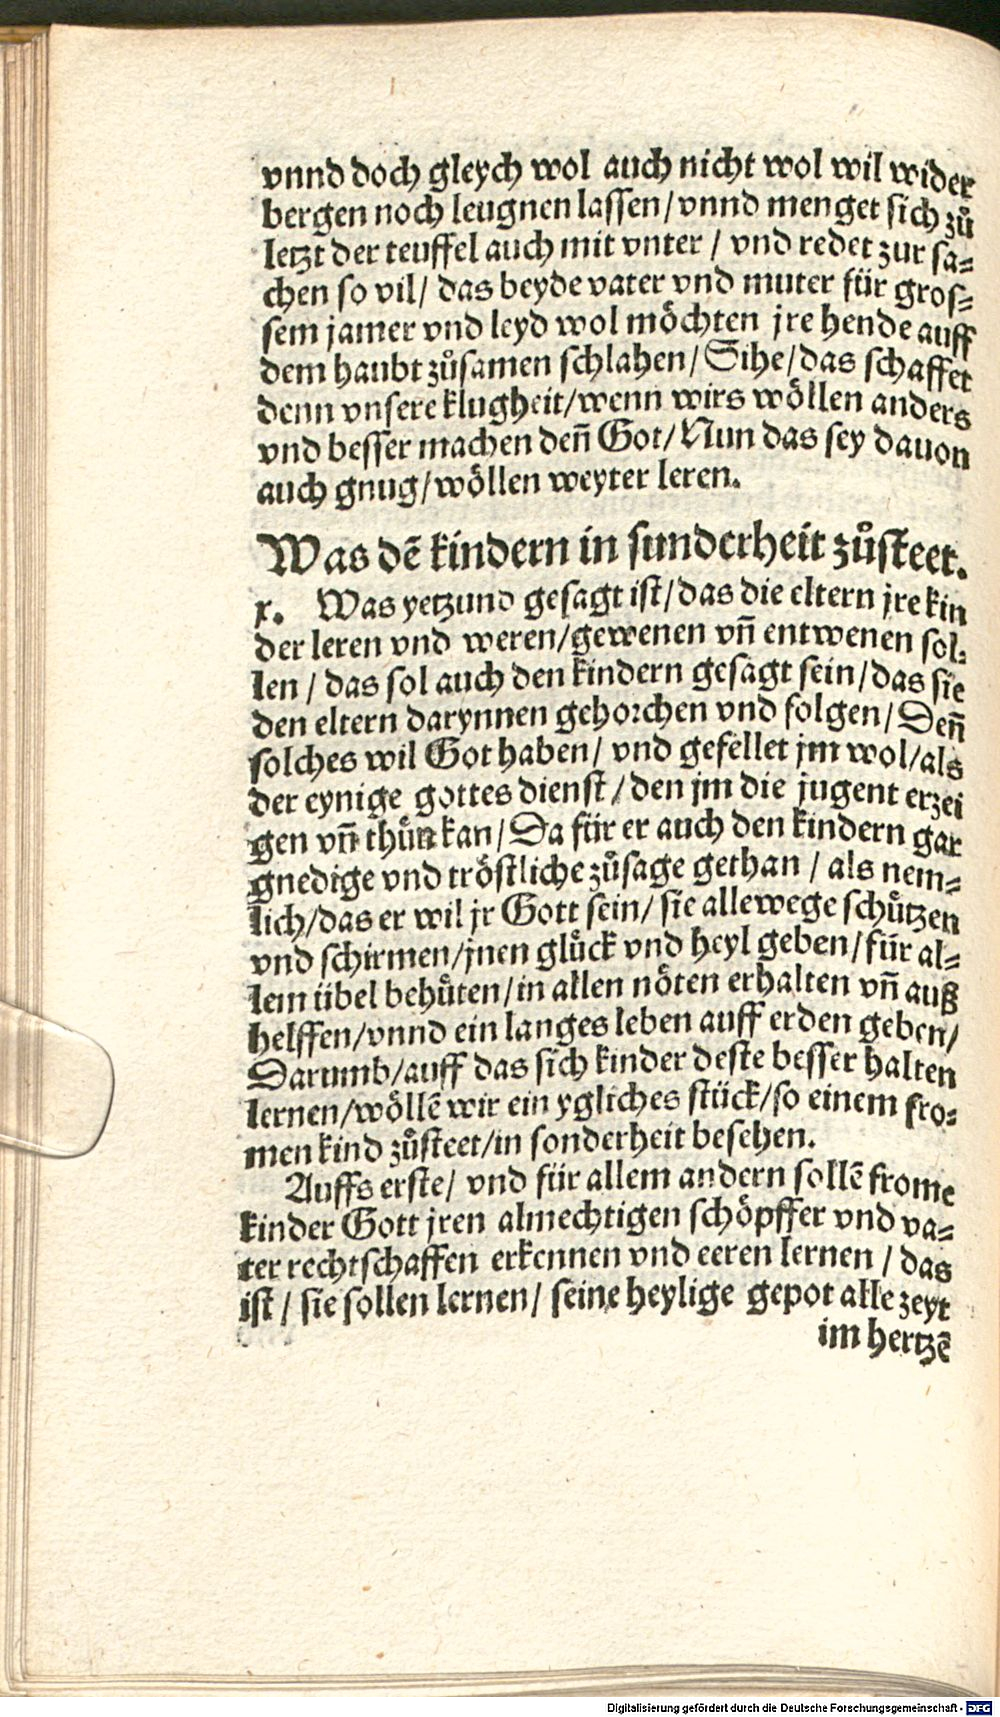 vnnd doch gleych wol auch nicht wol wil wider
bergen noch leugnen lassen/vnnd menget sich zů
letzt der teuffel auch mit vnter / vnd redet zur sa⸗
chen so vil/ das beyde vater vnd muter für gros⸗
sem jamer vnd leyd wol möchten jre hende auff
dem haubt zůsamen schlahen/ Sihe/das schaffet
denn vnsere klugheit/wenn wirs wöllen anders
vnd besser machen deñ Got/ Nun das sey dauon
auch gnug/wöllen weyter leren.
Was dē kindern in sunderheit zůsteet.
x. Was yetzund gesagt ist/das die eltern jre kin
der leren vnd weren/gewenen vñ entwenen sol⸗
len / das sol auch den kindern gesagt sein/das sie
den eltern darynnen gehorchen vnd folgen/ Deñ
solches wil Got haben/ vnd gefellet jm wol/als
der eynige gottes dienst / den jm die jugent erzei
gen vñ thůn kan/ Da für er auch den kindern gar
gnedige vnd tröstliche zůsage gethan / als nem⸗
lich/das er wil jr Gott sein/ sie allewege schützen
vnd schirmen/jnen glück vnd heyl geben/für al⸗
lem übel behüten/in allen nöten erhalten vñ auß
helffen/vnnd ein langes leben auff erden geben/
Darumb/auff das sich kinder deste besser halten
lernen/wöllē wir ein ygliches stück/so einem fro⸗
men kind zůsteet/in sonderheit besehen.
Auffs erste/ vnd für allem andern sollē frome
kinder Gott jren almechtigen schöpffer vnd va⸗
ter rechtschaffen erkennen vnd eeren lernen / das
ist / sie sollen lernen/ seine heylige gepot alle zeyt
im hertzē
Digitalisierung gefördert durch die Deutsche Forschungsgemeinschaft - DFG